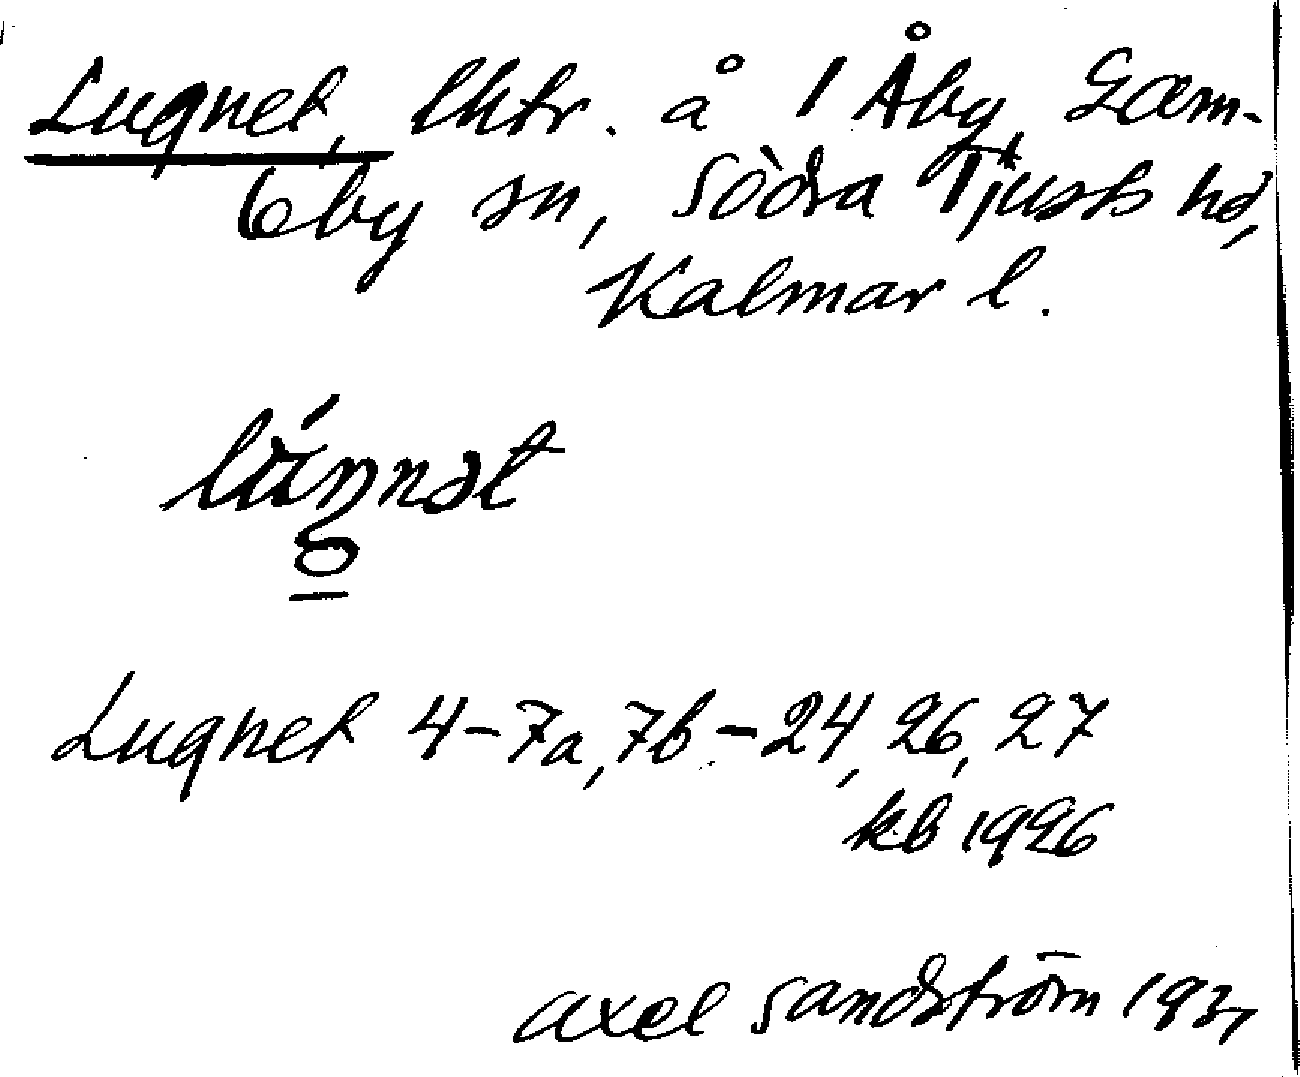 Lugnet, lhtr. å 1 Åby, Gam-
leby sn, Södra Tjusts hd,
Kalmar l.
Lugnet 4-7a, 7b-24, 26, 27
kb 1926
Axel Sandström 1937